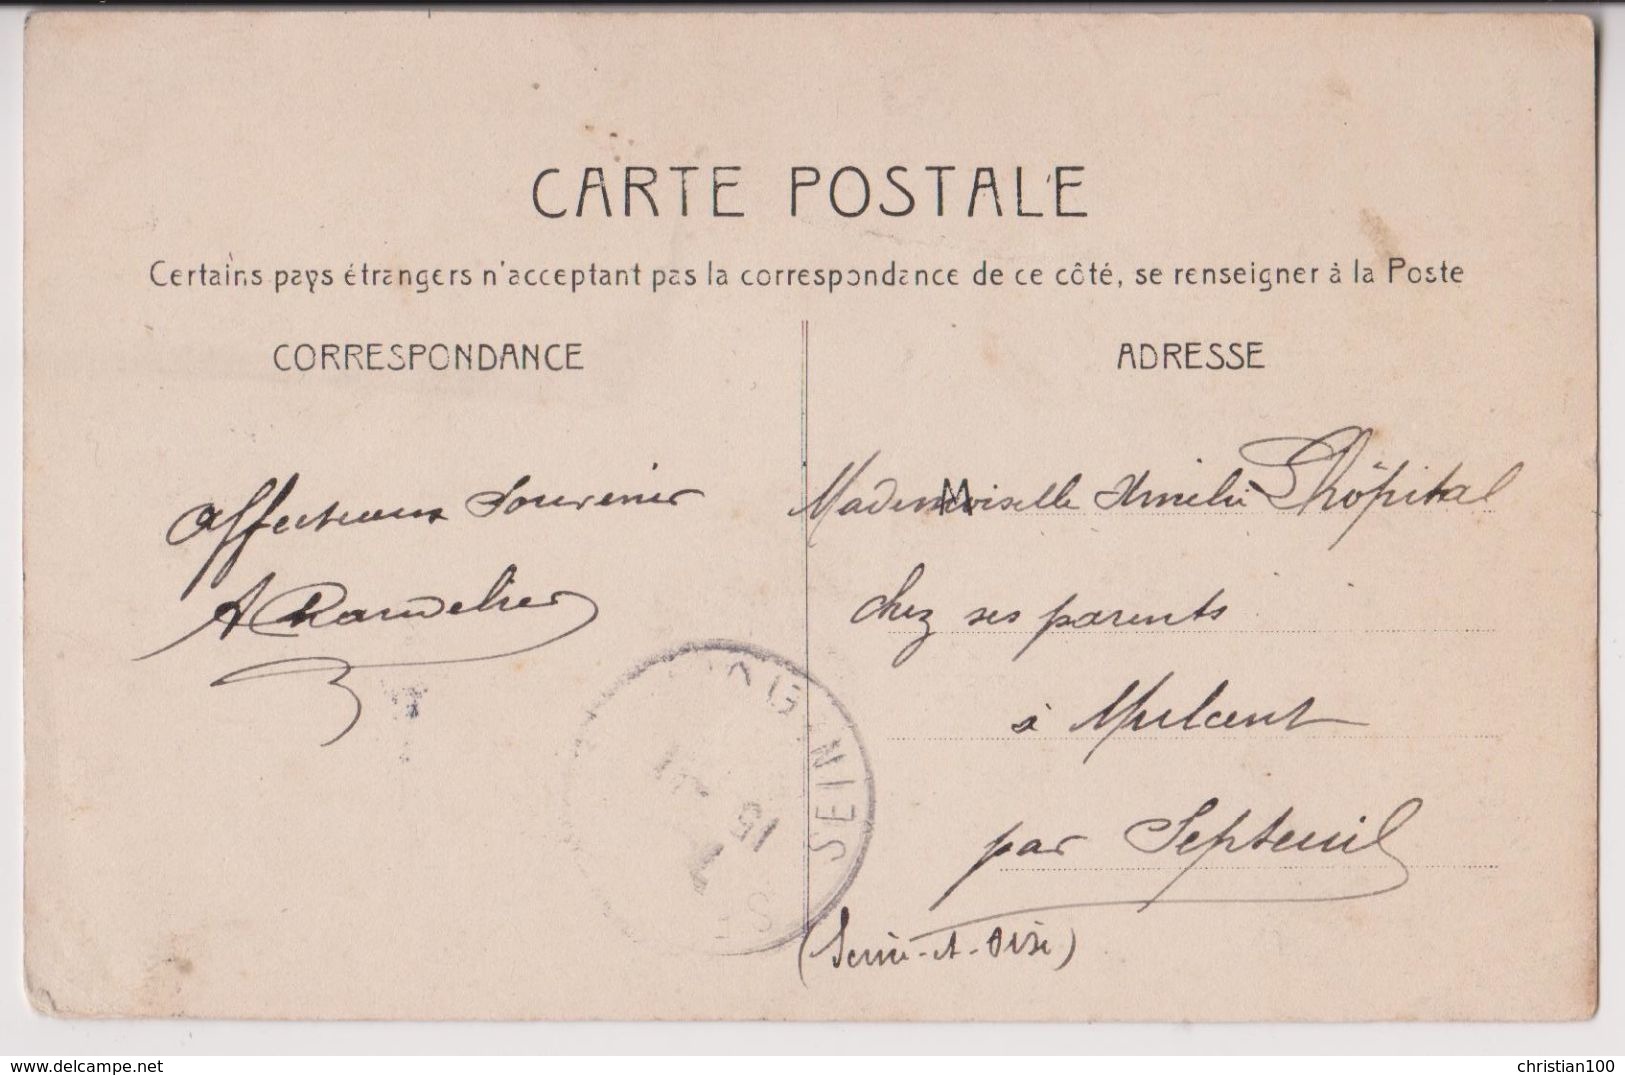 CARTE POSTALE
Certains pays étrangers n'acceptant pas la correspondance de ce côté, se renseigner à la Poste
CORRESPONDANCE
Affectueux Souvenir
A
ADRESSE
Mademoiselle Amélie Lhôpital
chez ses parents
à Mulcent
par Septeuil
(Seine-et-Oise)
SEINE
15
www.delcampe.net
christian100